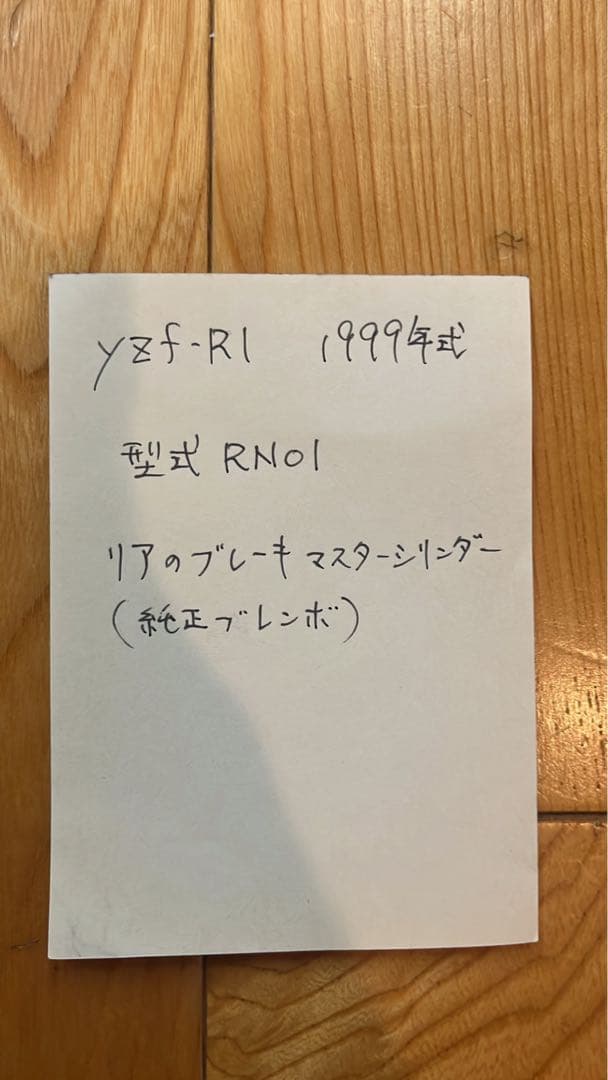 yzf-R1 1999年式
型式 RN01
リアのブレーキマスターシリンダー
(純正ブレンボ)